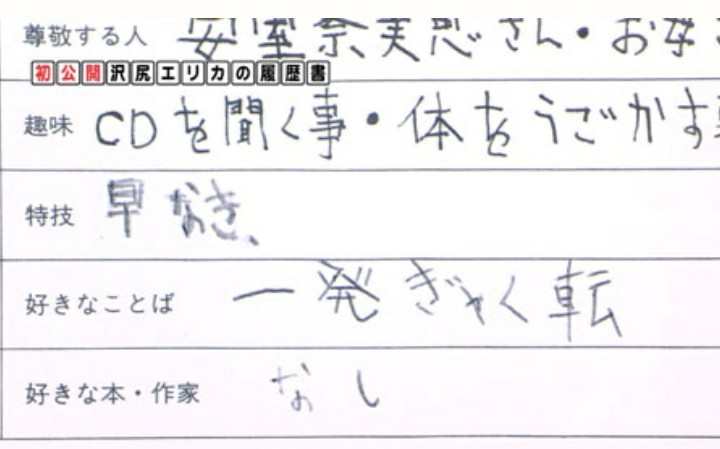 尊敬する人 安室奈美恵さん・お母さ
初公開沢尻エリカの履歴書
趣味 CDを聞く事・体をうごかす事
特技 早なき、
好きなことば 一発ぎゃく転
好きな本・作家 なし